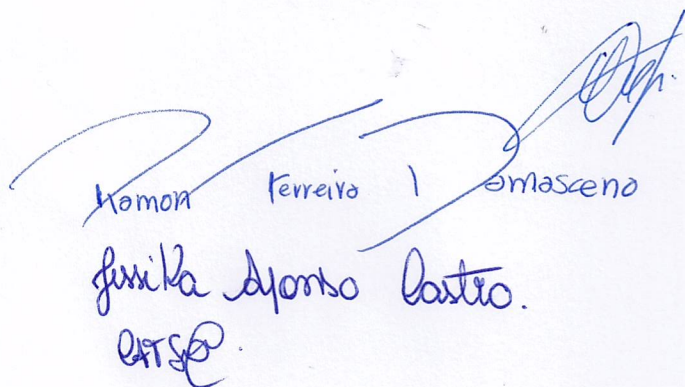 Ramon Ferreira Damasceno
Jessika Afonso Castro.